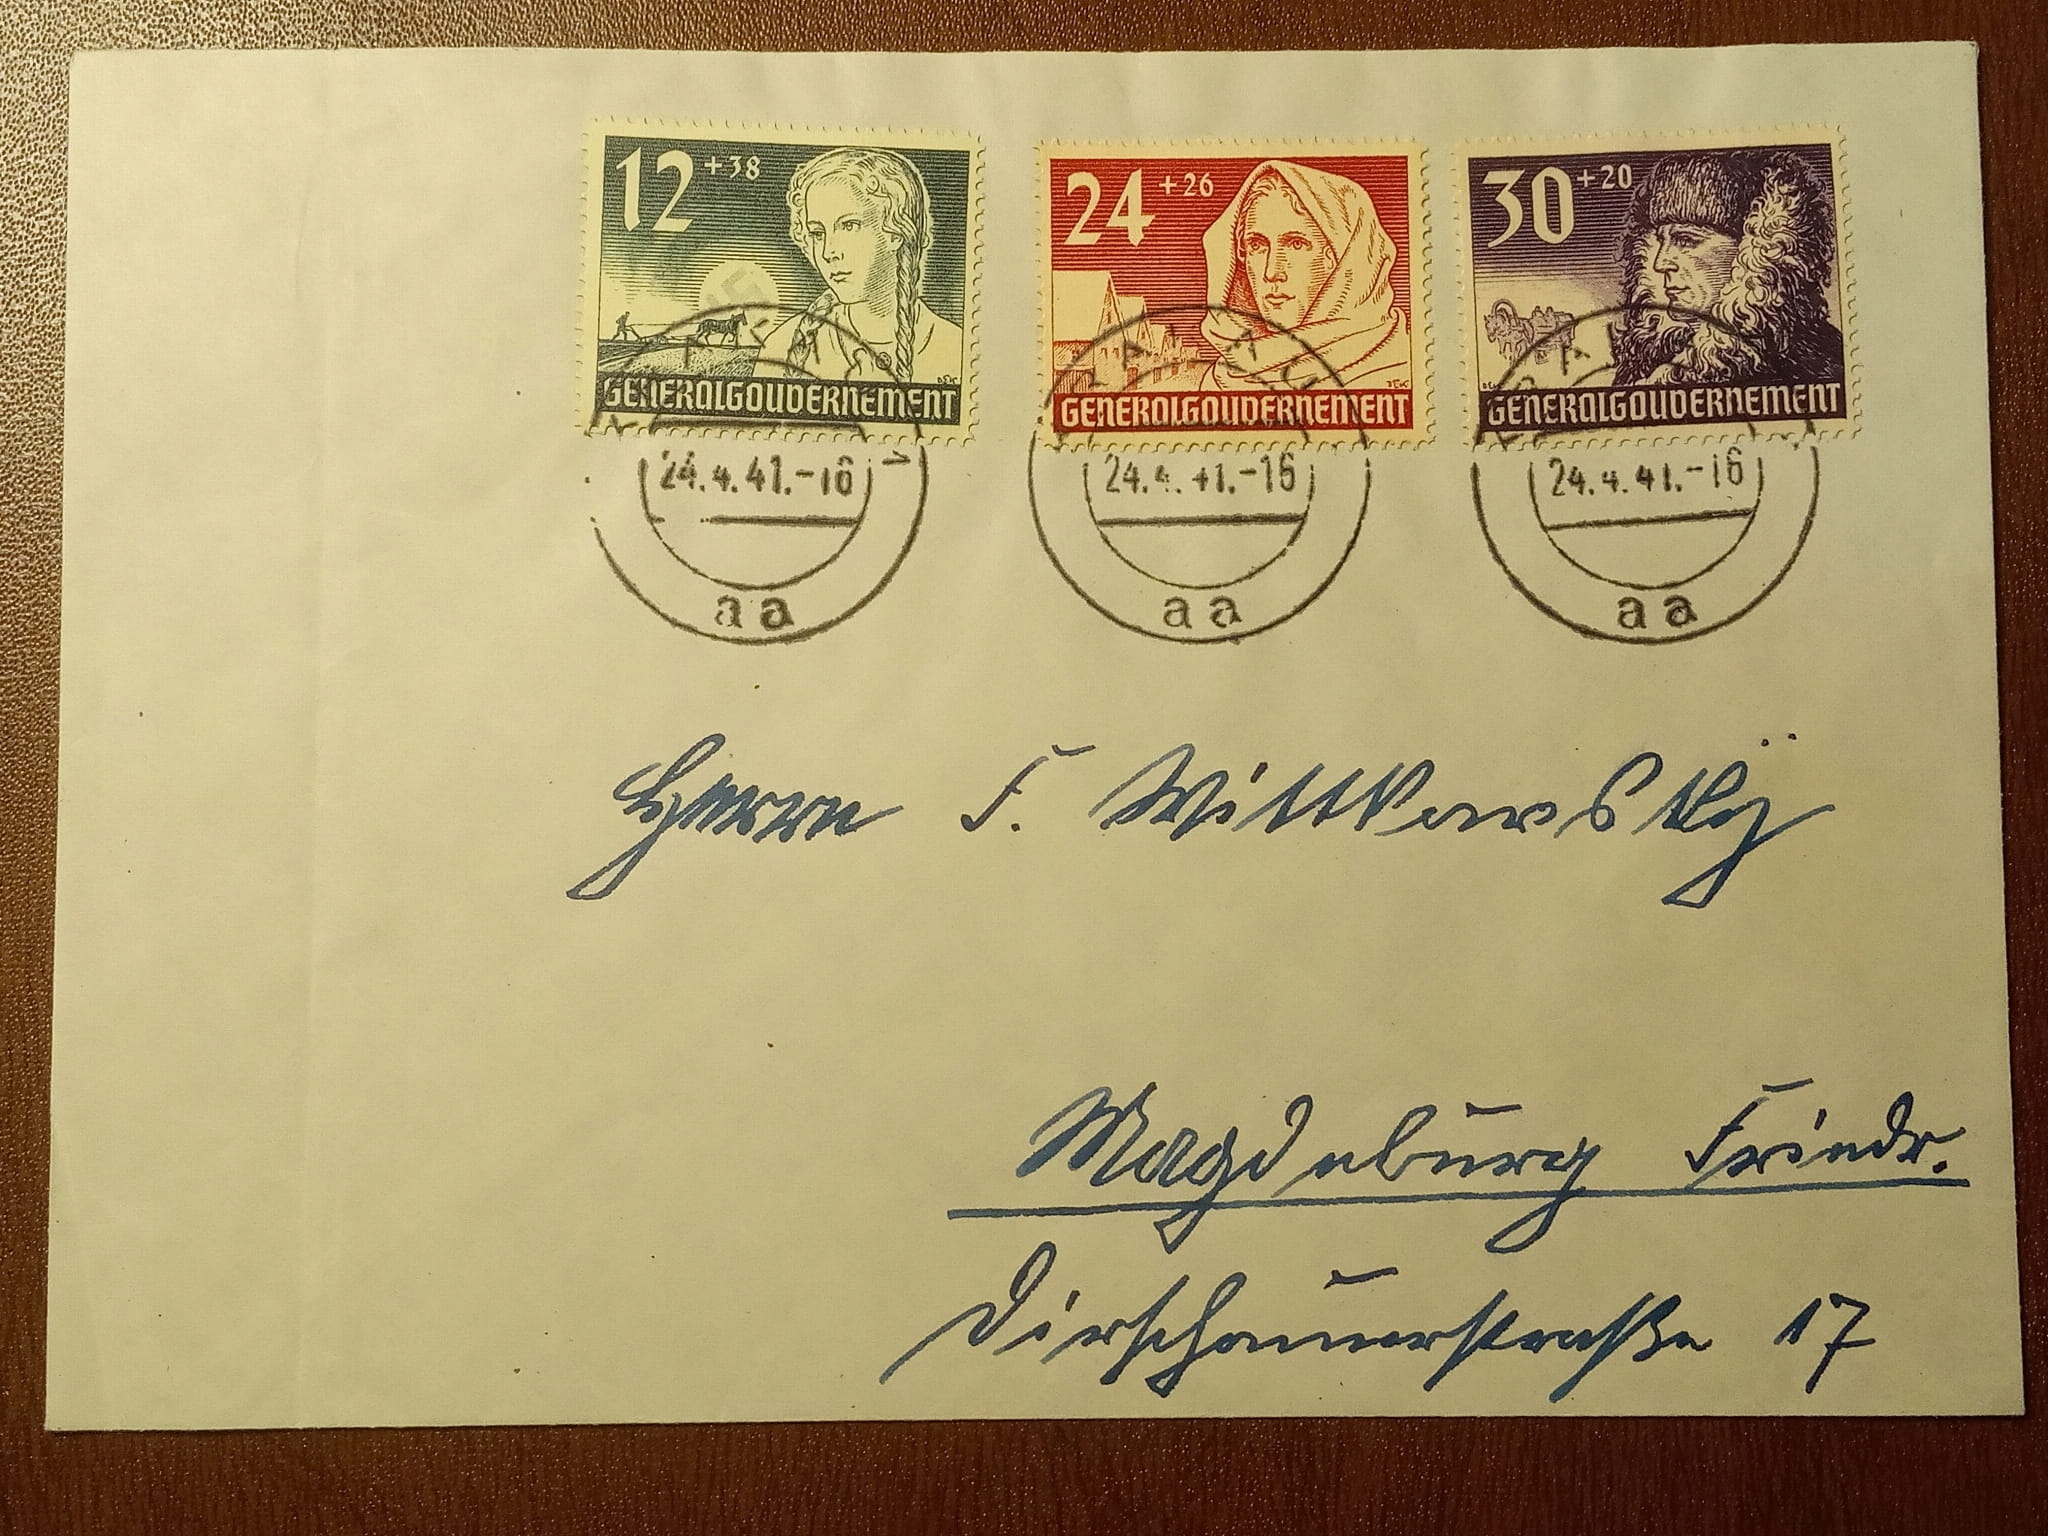 12 +38
GENERALGOUVERNEMENT
24 +26
GENERALGOUVERNEMENT
30 +20
GENERALGOUVERNEMENT
24.4.41.-16
aa
24.4.41.-16
aa
24.4.41.-16
aa
Herrn F. Wittkowsky
Magdeburg Friedr.
Dirschauerstraße 17